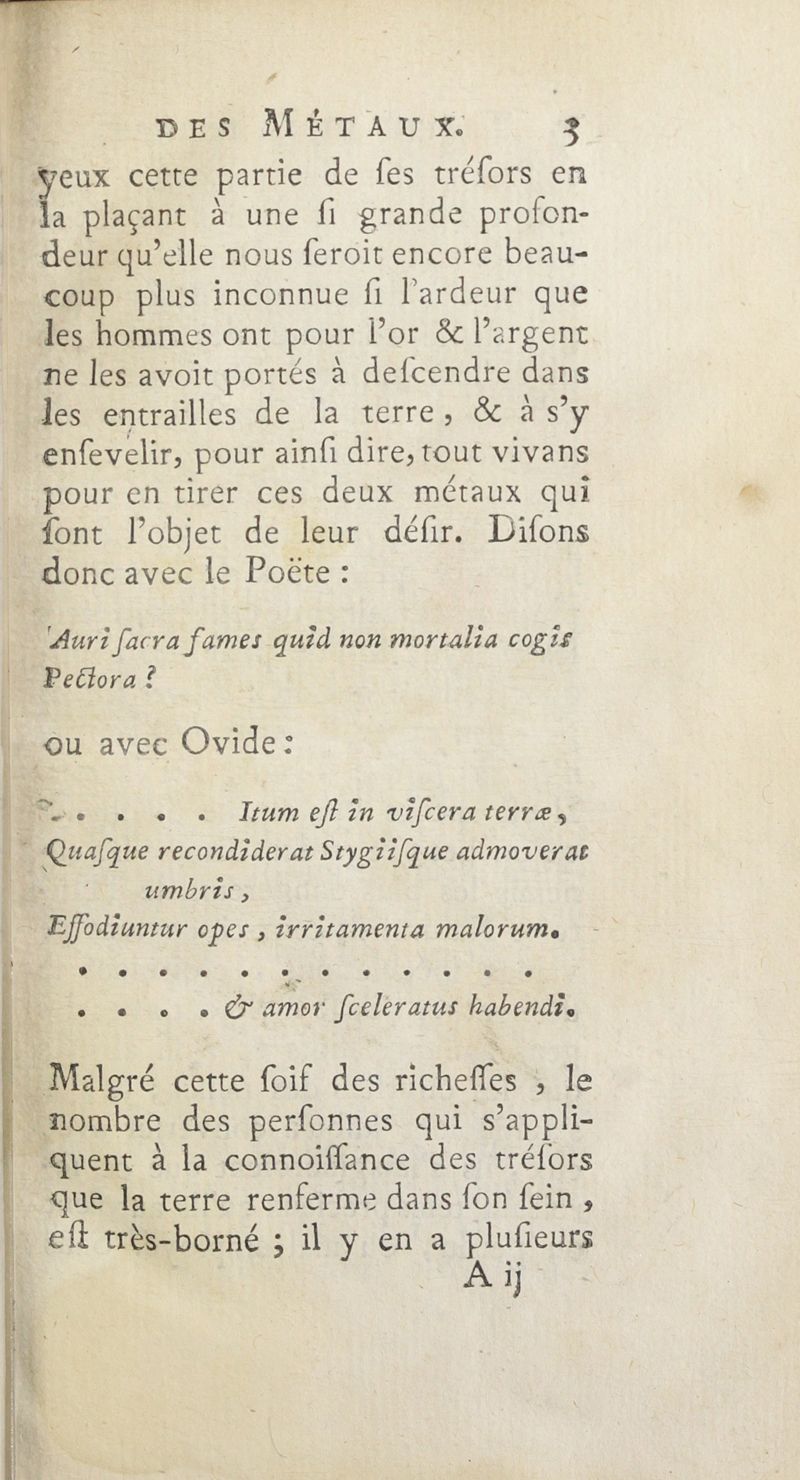 DES MÉTAUX. 3
yeux cette partie de ſes tréſors en
la plaçant à une ſi grande profon-
deur qu’elle nous ſeroit encore beau-
coup plus inconnue ſi l’ardeur que
les hommes ont pour l’or & l’argent
ne les avoit portés à deſcendre dans
les entrailles de la terre, & à s’y
enſevelir, pour ainſi dire, tout vivans
pour en tirer ces deux métaux qui
ſont l’objet de leur déſir. Diſons
donc avec le Poëte :
Auri ſacra fames quid non mortalia cogis
Pectora ?
ou avec Ovide :
. . . . . Itum eſt in viſcera terræ,
Quaſque recondiderat Stygiiſque admoverat
umbris,
Effodiuntur opes, irritamenta malorum.
. . . . . . . . . . . .
. . . . & amor ſceleratus habendi.
Malgré cette ſoif des richeſſes, le
nombre des perſonnes qui s’appli-
quent à la connoiſſance des tréſors
que la terre renferme dans ſon ſein,
eſt très-borné ; il y en a pluſieurs
A ij